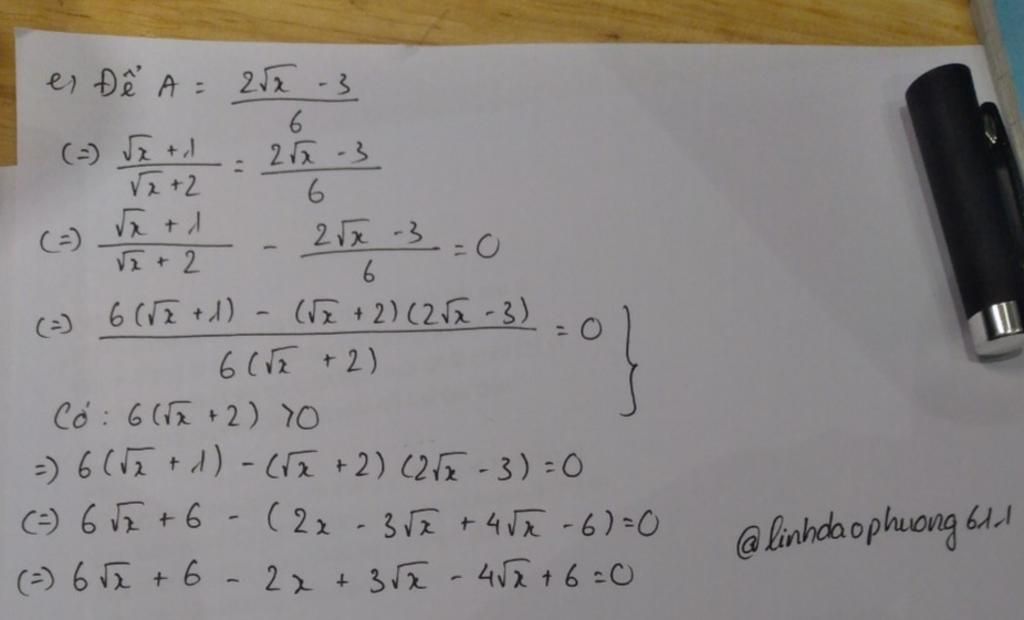 e, Để A = (2√x - 3)/6
(=) (√x + 1)/(√x + 2) = (2√x - 3)/6
(=) (√x + 1)/(√x + 2) - (2√x - 3)/6 = 0
(=) (6(√x + 1) - (√x + 2)(2√x - 3))/(6(√x + 2)) = 0 }
Có : 6(√x + 2) > 0
=) 6(√x + 1) - (√x + 2)(2√x - 3) = 0
(=) 6√x + 6 - (2x - 3√x + 4√x - 6) = 0
(=) 6√x + 6 - 2x + 3√x - 4√x + 6 = 0
@linhdaophuong611